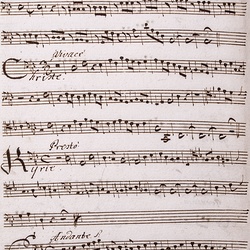 Vivace
Christe.
Presto
Kyrie.
Andante